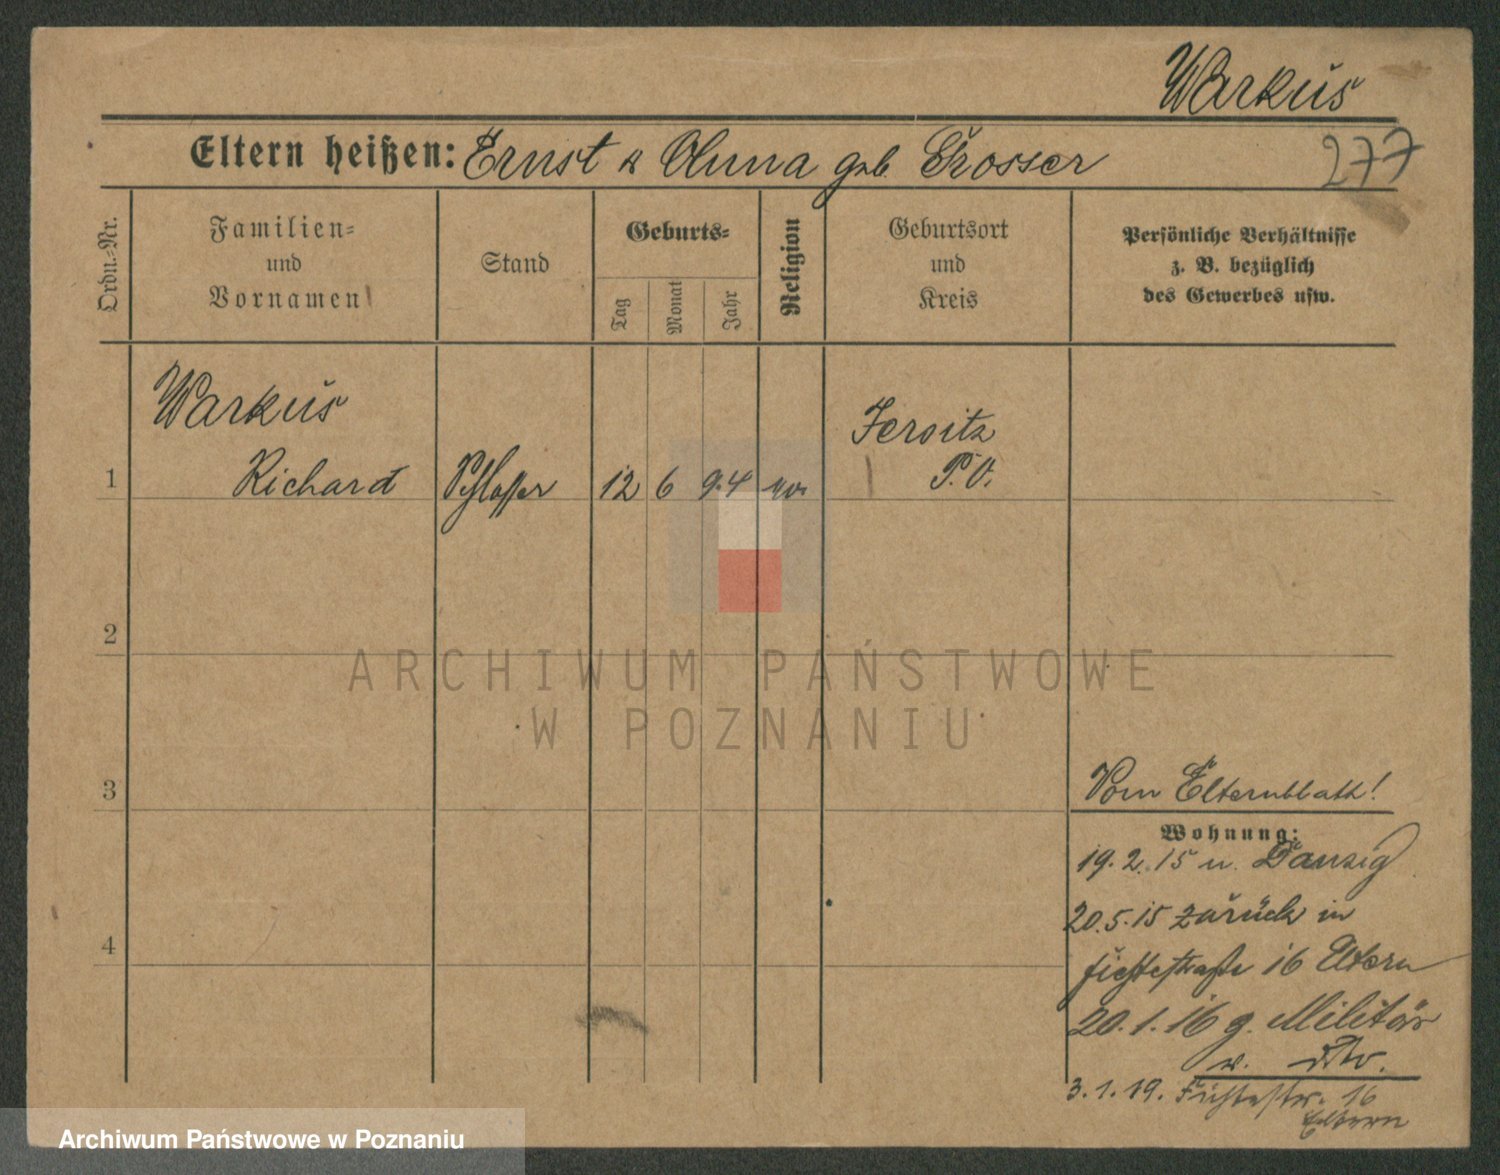 Warkus
Eltern heißen: Ernst & Anna geb. Grosser
277
Ordn.-Nr.
Familien-
und
Vornamen
Stand
Geburts-
Tag
Monat
Jahr
Religion
Geburtsort
und
Kreis
Persönliche Verhältnisse
z. B. bezüglich
des Gewerbes usw.
Warkus
1 Richard Schlosser 12 6 94
Jersitz
P. O.
2
3
4
Vom Elternblatt!
Wohnung:
19.2.15 n. Danzig
20.5.15 zurück in
Fichtestraße 16 Eltern
20.1.16 z. Militär
3.1.19. Fichtestr. 16
Eltern
ARCHIWUM PAŃSTWOWE
W POZNANIU
Archiwum Państwowe w Poznaniu